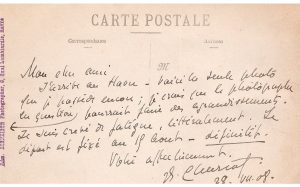 CARTE POSTALE
Correspondance
Adresse
Mon cher ami
J'arrive au Havre - voici la seule photo
que je possède encore; je crois que le photographe
en question pourrait faire des agrandissements.
Je suis crevé de fatigue, littéralement. Le
départ est fixé au 15 Août. définitif.
Votre affectueusement.
J. Charcot
28. VII. 08.
Photographe, 6, Quai Lamblardie, Havre